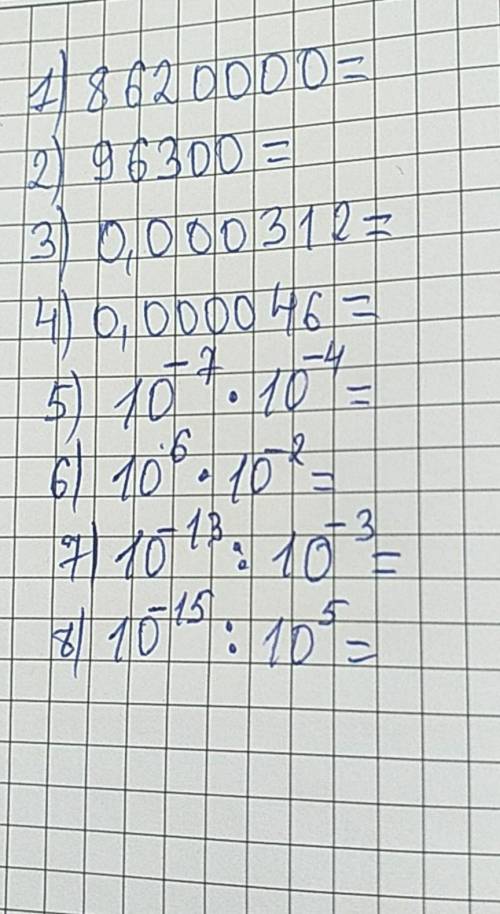 1) 8620000=
2) 96300=
3) 0,000312=
4) 0,000046=
5) 10⁻⁷·10⁻⁴=
6) 10⁶·10⁻²=
7) 10⁻¹³:10⁻³=
8) 10⁻¹⁵:10⁵=